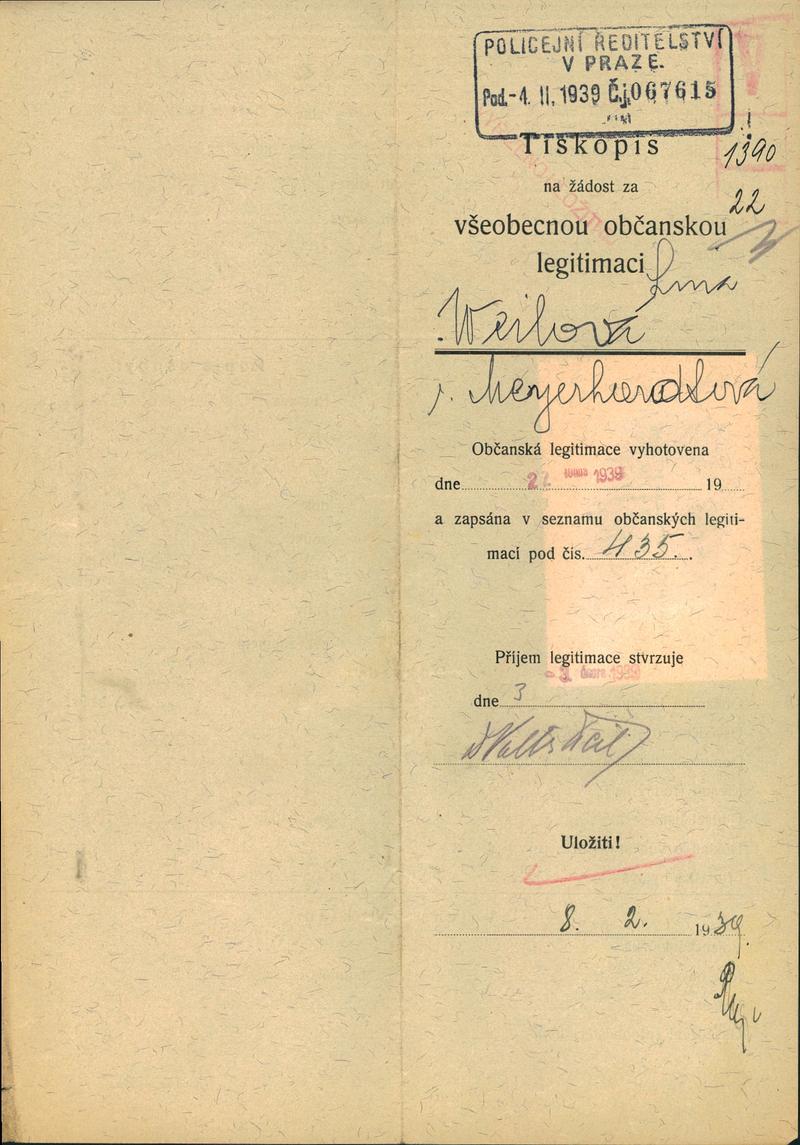 POLICEJNÍ ŘEDITELSTVÍ
V PRAZE.
Pod. -4. II. 1939 Č.j. 067615
Tiskopis
1390
na žádost za
22
všeobecnou občanskou
legitimaci
Weilová
r. Meyerhardtová
Občanská legitimace vyhotovena
dne 2 1939 19
a zapsána v seznamu občanských legiti-
mací pod čís. 435.
Příjem legitimace stvrzuje
dne 3
Uložiti!
8. 2. 1939.